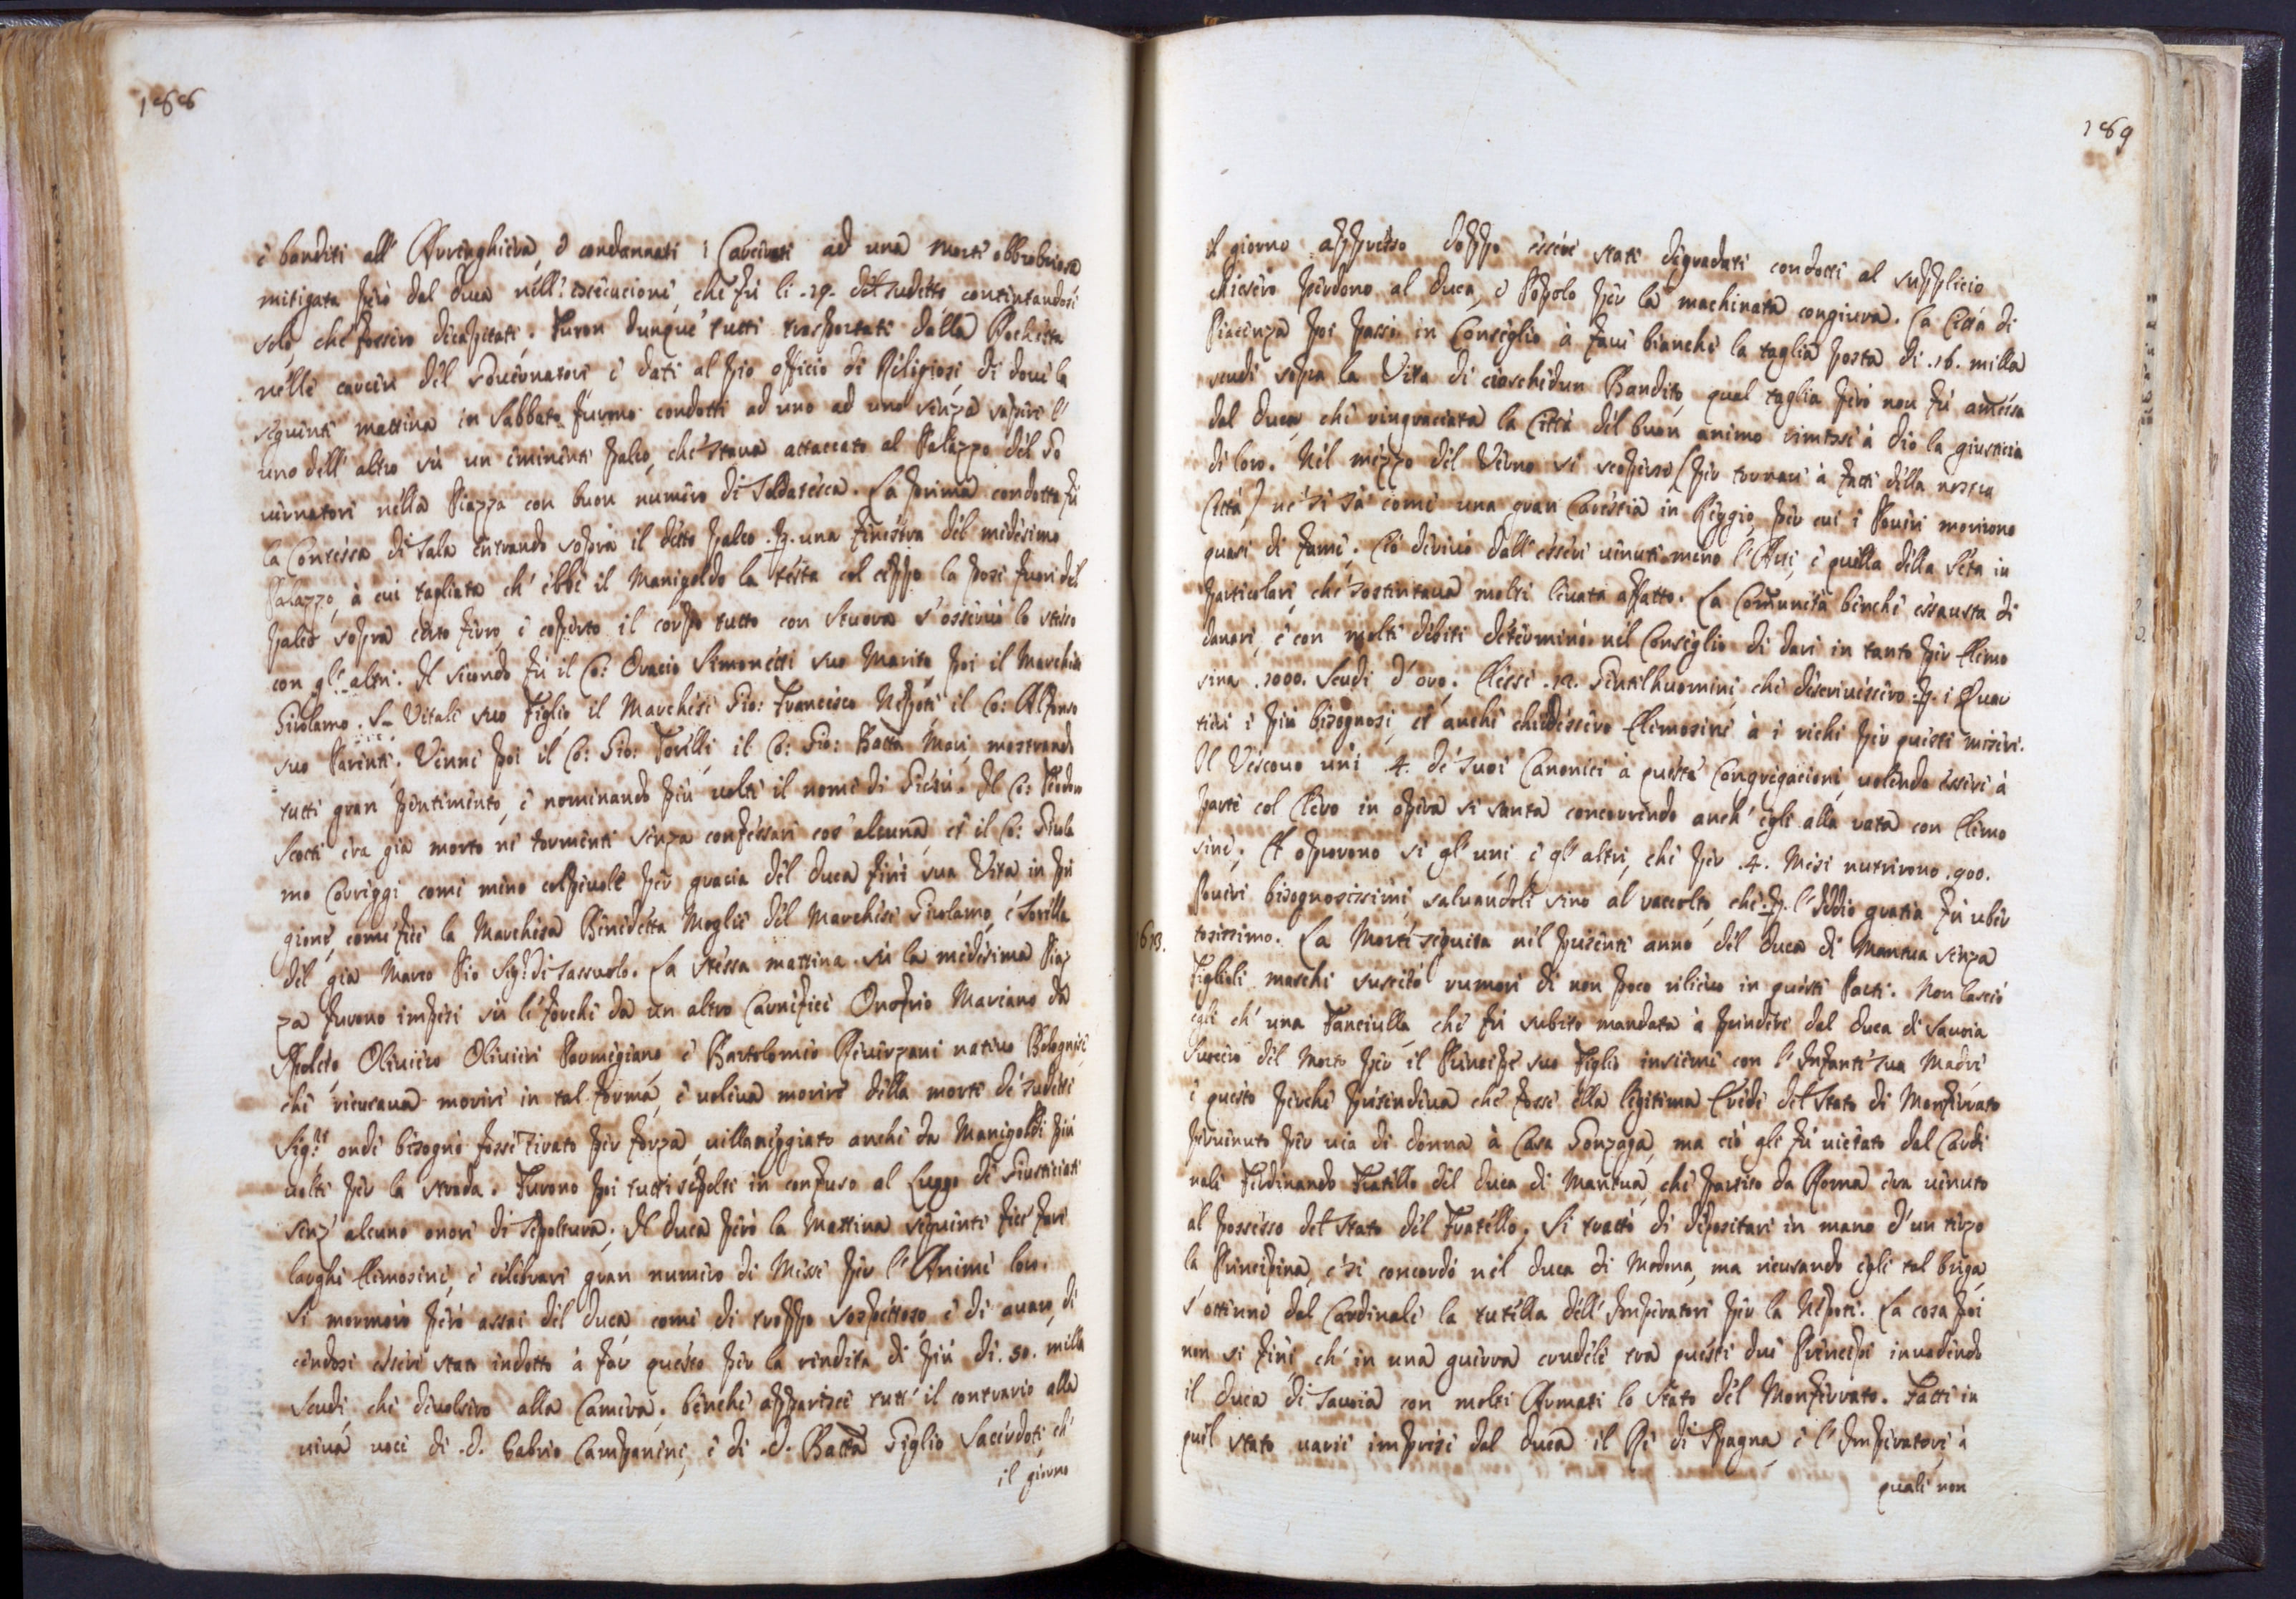 188
è banditi all' Arrenghiera, è condannati i Carcerati ad una Morte obbrobriosa
mitigata però dal Duca nell'essecucione, che fù li .19. del sudetto contentandosi
solo, che fossero decapitati. Furon dunque tutti trasportati dalla Rochetta
nelle carceri del Governatore, è dati al pio officio di Religiosi, di dove la
seguente mattina in Sabbato furono condotti ad uno ad uno senza sapere l'
uno dell' altro sù un eminente palco, che stava attaccato al Palazzo del Go
vernatore nella Piazza con buon numero di Soldatesca. La prima condotta fù
la Contessa di Sala entrando sopra il detto palco p. una finestra del medesimo
Palazzo, à cui tagliata ch' ebbe il Manigoldo la testa col ceppo la pose fuori del
palco sopra certo ferro, è coperto il corpo tutto con Stuora s' osservò lo stesso
con gl' altri. Il secondo fù il Co: Oracio Simonetti suo Marito, poi il Marchese
Girolamo S. Vitale suo Figlio, il Marchese Gio: Francesco Nepote il Co: Alfonso
suo Parente. Venne poi il Co: Gio: Torelli, il Co: Gio: Batta Mari, mostrando
tutti gran pentimento, è nominando più volte il nome di Giesù. Il Co: Teodoro
Scotti era già morto ne' tormenti senza confessare cos' alcuna, et il Co: Girola
mo Correggi come meno colpevole per gracia del Duca finì sua Vita in pri
gione, come fece la Marchesa Benedetta Moglie del Marchese Girolamo, è Sorella
del già Marco Pio Sig.r di Sassuolo. La stessa mattina sù la medesima Piaz
za furono impesi sù le forche da un altro Carnefice Onofrio Marciano da
Spoleto, Oliviero Olivieri Parmigiano, è Bartolomeo Reverzani nativo Bolognese,
che ricusava morire in tal forma, è voleva morire della morte de' sudetti
Sig.ri onde bisognò fosse tirato per forza, villaneggiato anche da Manigoldi più
volte per la strada. Furono poi tutti sepolti in confuso al Luogo de' Giusticiati
senz' alcuno onore di Sepoltura. Il Duca però la Mattina seguente fece fare
larghe Elemosine, è celebrare gran numero di Messe per l' Anime loro.
Si mormorò però assai del Duca come di troppo sospettoso, è di avaro, di
cendosi essere stato indotto à far questo per la rendita di più di .50. milla
Scudi, che devolsero alla Camera; benche apparisce tutt' il contrario alla
viva voce di .D. Cabrio Campanini, è di .D. Batta Figlio Sacerdoti, ch'
il giorno
189
il giorno appresso doppo essere stati degradati condotti al supplicio
chiesero perdono al Duca, è Popolo per la machinata congiura. La Città di
Piacenza poi passò in Conseglio à fave bianche la taglia posta di .16. milla
scudi sopra la Vita di ciaschedun Bandito, qual taglia però non fù amessa
dal Duca, che ringraciata la Città del buon animo rimesse à Dio la giusticia
di loro. Nel mezzo del Verno si scoperse (per tornare à fatti della nostra
Città) ne' si sà come una gran Carestia in Reggio, per cui i Poveri morirono
quasi di fame. Ciò derivò dall' essere venuti meno l'Arti, è quella della Seta in
particolare, che sostentava molti levata affatto. La Comunità benche essausta di
danari, è con molti debiti determinò nel Conseglio di dare in tanto per Elimo
sina .1000. Scudi d' oro. Elesse .12. Gentilhuomini, che descrivessero .p. i Quar
tieri i più bisognosi, et anche chiedessero Elimosine à i richi per questi miseri.
Il Vescovo unì .4. de' suoi Canonici à questa Congregacione, volendo essere à
parte col Clero in opera si santa concorrendo anch' egli alla rata con Elimo
sine; Et oprorono si gl' uni, è gl' altri, che per .4. Mesi nutrirono .900.
Poveri bisognosissimi, salvandoli sino al raccolto, che .p. l' Iddio gratia fù uber
1613.
tosissimo. La Morte seguita nel presente anno del Duca di Mantua senza
Figlioli maschi suscitò rumori di non poco rilievo in queste Parti. Non lasciò
egli ch' una Fanciulla, che fù subito mandata à prendere dal Duca di Savoia
Suocero del Morto per il Principe suo Figlio insieme con l' Infante sua Madre
è questo perche pretendeva che fosse ella legitima Erede del Stato di Monferrato
pervenuto per via di donna à Casa Gonzaga, ma ciò gli fù vietato dal Cardi
nale Ferdinando Fratello del Duca di Mantua, che partito da Roma era venuto
al possesso del Stato del Fratello. Si trattò di depositare in mano d' un terzo
la Principina, è si concordò nel Duca di Modona, ma ricusando egli tal briga,
s' ottenne dal Cardinale la tutella dell' Imperatore per la Nepote. La cosa poi
non si finì, ch' in una guerra crudele tra questi due Principi invadendo
il Duca di Savoia con molti Armati lo Stato del Monferrato. Fatti in
quel stato varie imprese dal Duca il Rè di Spagna, è l' Imperatore, à
quali non